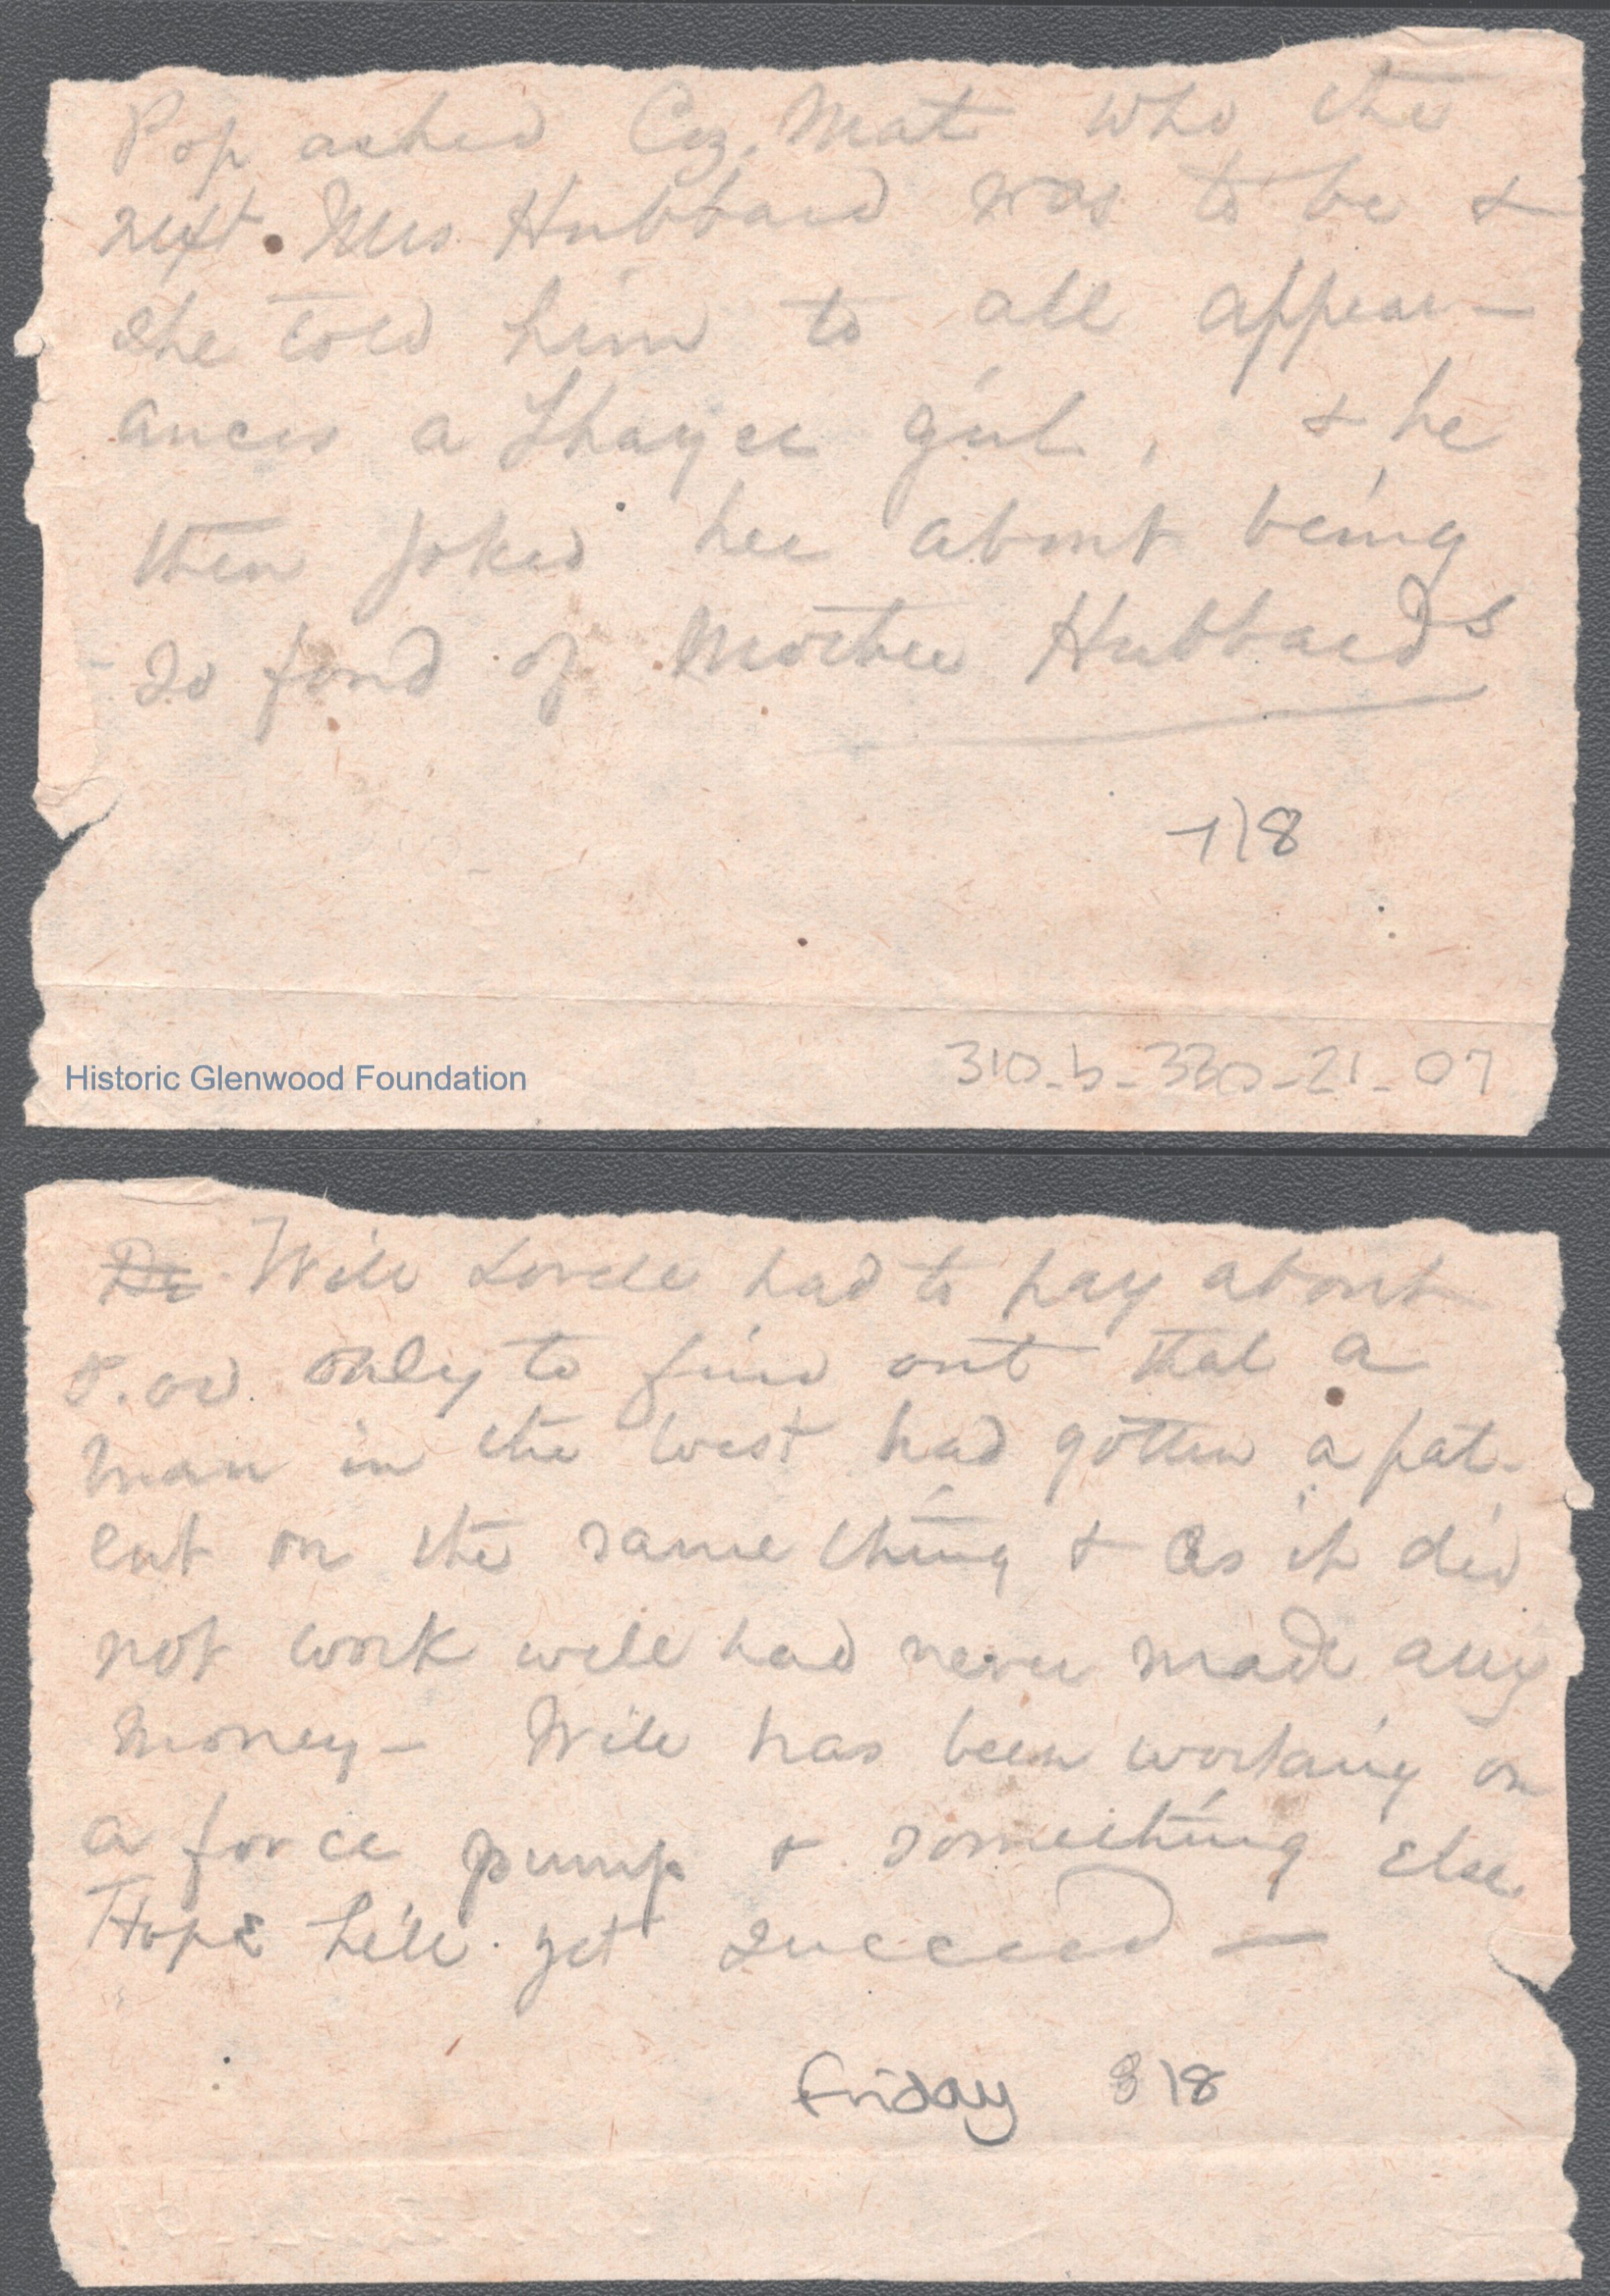 Pop asked Coz. Mat who the
next Mrs Hubbard was to be &
she told him to all appear-
ances a Thayer girl, & he
then joked her about being
so fond of Mother Hubbards
7/8
Historic Glenwood Foundation
310-b-330-21-07
Will had to pay about
5.00 only to find out that a
man in the west had gotten a pat-
ent on the same thing & as it did
not work well had never made any
money - Will has been working on
a force pump & something else
Hope he'll yet succeed -
Friday 8/8